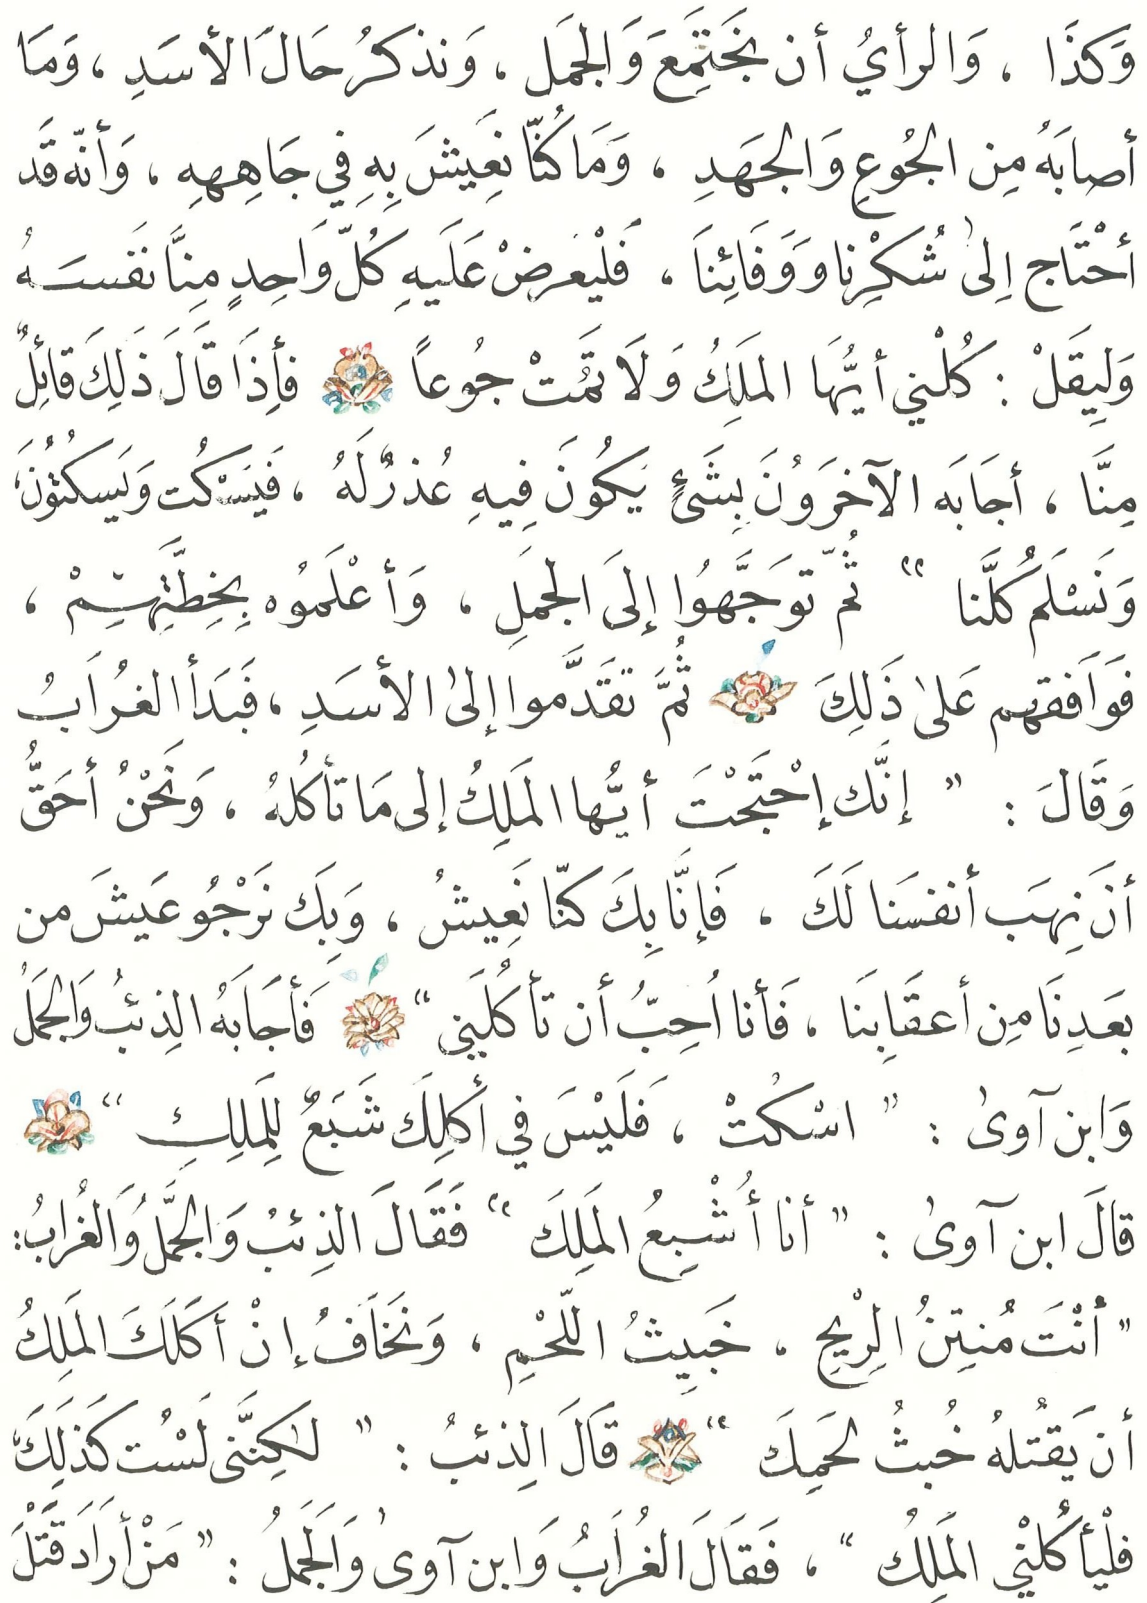 وَكَذَا ، وَالرأيُ أن نجَتَمِعَ وَالجمَل ، وَنذكرُ حَالَ الأسَدِ ، وَمَا
أصابَهُ مِن الجُوعِ وَالجهَدِ ، وَمَا كُنّا نعِيشَ بِهِ فِي جَاهِهِهِ ، وَأنّه قَد
أحْتَاج إِلىٰ شُكْرِنا وَوَفَائِنَا ، فَلْيعرِضْ عَلَيهِ كُلّ وَاحِدٍ مِنَّا نَفسَـهُ
وَلِيقَلْ : كُلْني أيُّهَا الملَكُ وَلَا تَمُتْ جُوعاً فَأِذَا قَالَ ذَلِكَ قائِلٌ
مِنَّا ، أجَابَه الآخرَوُنَ بِشَئٍ يَكُونَ فِيهِ عُذرٌ لَهُ ، فَيَسْكُت وَيَسكُتُونَ،
وَنَسْلَم كُلَّنا “ ثُمّ توَجَّهُوا إلىَ الجملِ ، وَأعْلَموُه بِخِطَّتِهِـمْ ،
فوَافَقهم عَلىٰ ذَلِكَ ثُمَّ تقَدَّموا إلىٰ الأسَدِ ، فَبَدَأ الغرُابُ
وَقَالَ : ” إنَّك إحْتَجْتَ أيّها المَلِكُ إلى مَا تأكُلهُ ، وَنَحْنُ أحَقُّ
أنَ نِهَب أنفسَنا لَكَ ، فَإنَّا بِكَ كنّا نَعِيشُ ، وَبِكَ نَرْجُو عَيشَ من
بَعدِنَا مِن أعقَابِنَا ، فَأنا اُحِبّ أن تأكُلَني “ فَأجَابَهُ الذِئبُ وَالجَمَلُ
وَابن آوىٰ : ” اسْكُتْ ، فَلَيْسَ في أَكلِكَ شَبَعٌ لِلِمَلِكِ “
قالَ ابن آوىٰ : ” أنا أُشْبِعُ المَلِكَ “ فَقَالَ الذِئبُ وَالجَمَّلُ وَالغُرابُ:
” أنْتَ مُنتِنُ الرِيْحِ ، خَبِيثُ اللّحْمِ ، وَنَخَافُ إنْ أكَلَكَ المَلِكُ
أن يَقتُلهُ خُبثُ لحَمِكَ “ قَالَ الِذئبُ : ” لٰكِنَّنى لَسْت كَذَلِكَ،
فلْيأكُلْنِي المَلِكُ “ ، فَقَالَ الغُرَابُ وَابن آوىٰ وَالَجَملُ : ” مَنْ أرَادَ قَتْلَ